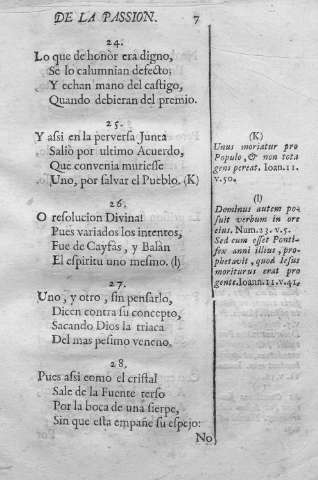 DE LA PASSION. 7
24.
Lo que de honòr era digno,
Se lo calumnian defecto;
Y echan mano del castigo,
Quando debieran del premio.
25.
Y assi en la perversa Junta
Saliò por ultimo Acuerdo,
Que convenia muriesse
Uno, por salvar el Pueblo. (K)
26.
O resolucion Divina!
Pues variados los intentos,
Fue de Cayfàs, y Balàn
El espiritu uno mesmo. (l)
27.
Uno, y otro, sin pensarlo,
Dicen contra su concepto,
Sacando Dios la triaca
Del mas pesimo veneno.
28.
Pues assi como el cristal
Sale de la Fuente terso
Por la boca de una sierpe,
Sin que esta empañe su espejo:
No
(K)
Unus moriatur pro
Populo, & non tota
gens pereat. Ioan. 11.
v. 50.
(l)
Dominus autem po-
suit verbum in ore
eius. Num. 23. v. 5.
Sed cum esset Ponti-
fex anni illius, pro-
phetavit, quod Iesus
moriturus erat pro
gente. Ioann. 11. v. 41.